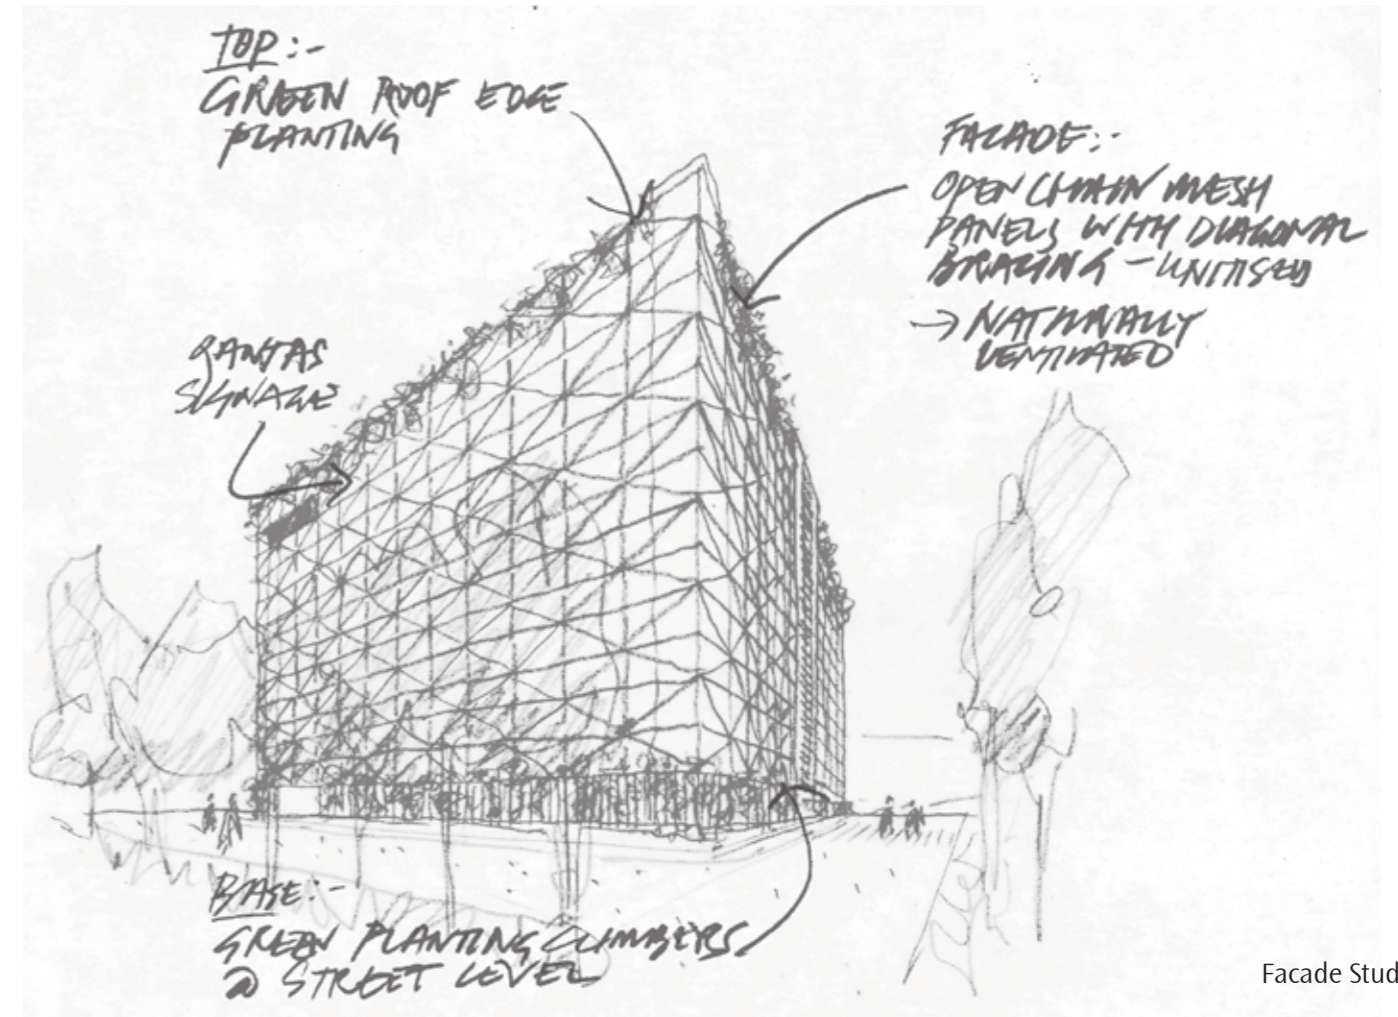 TOP:-
GREEN ROOF EDGE
PLANTING
FACADE:-
OPEN CHAIN MESH
PANELS WITH DIAGONAL
BRACING - UNITISED
→ NATURALLY
VENTILATED
QANTAS
SIGNAGE
BASE:-
GREEN PLANTING CLIMBERS
@ STREET LEVEL
Facade Stud